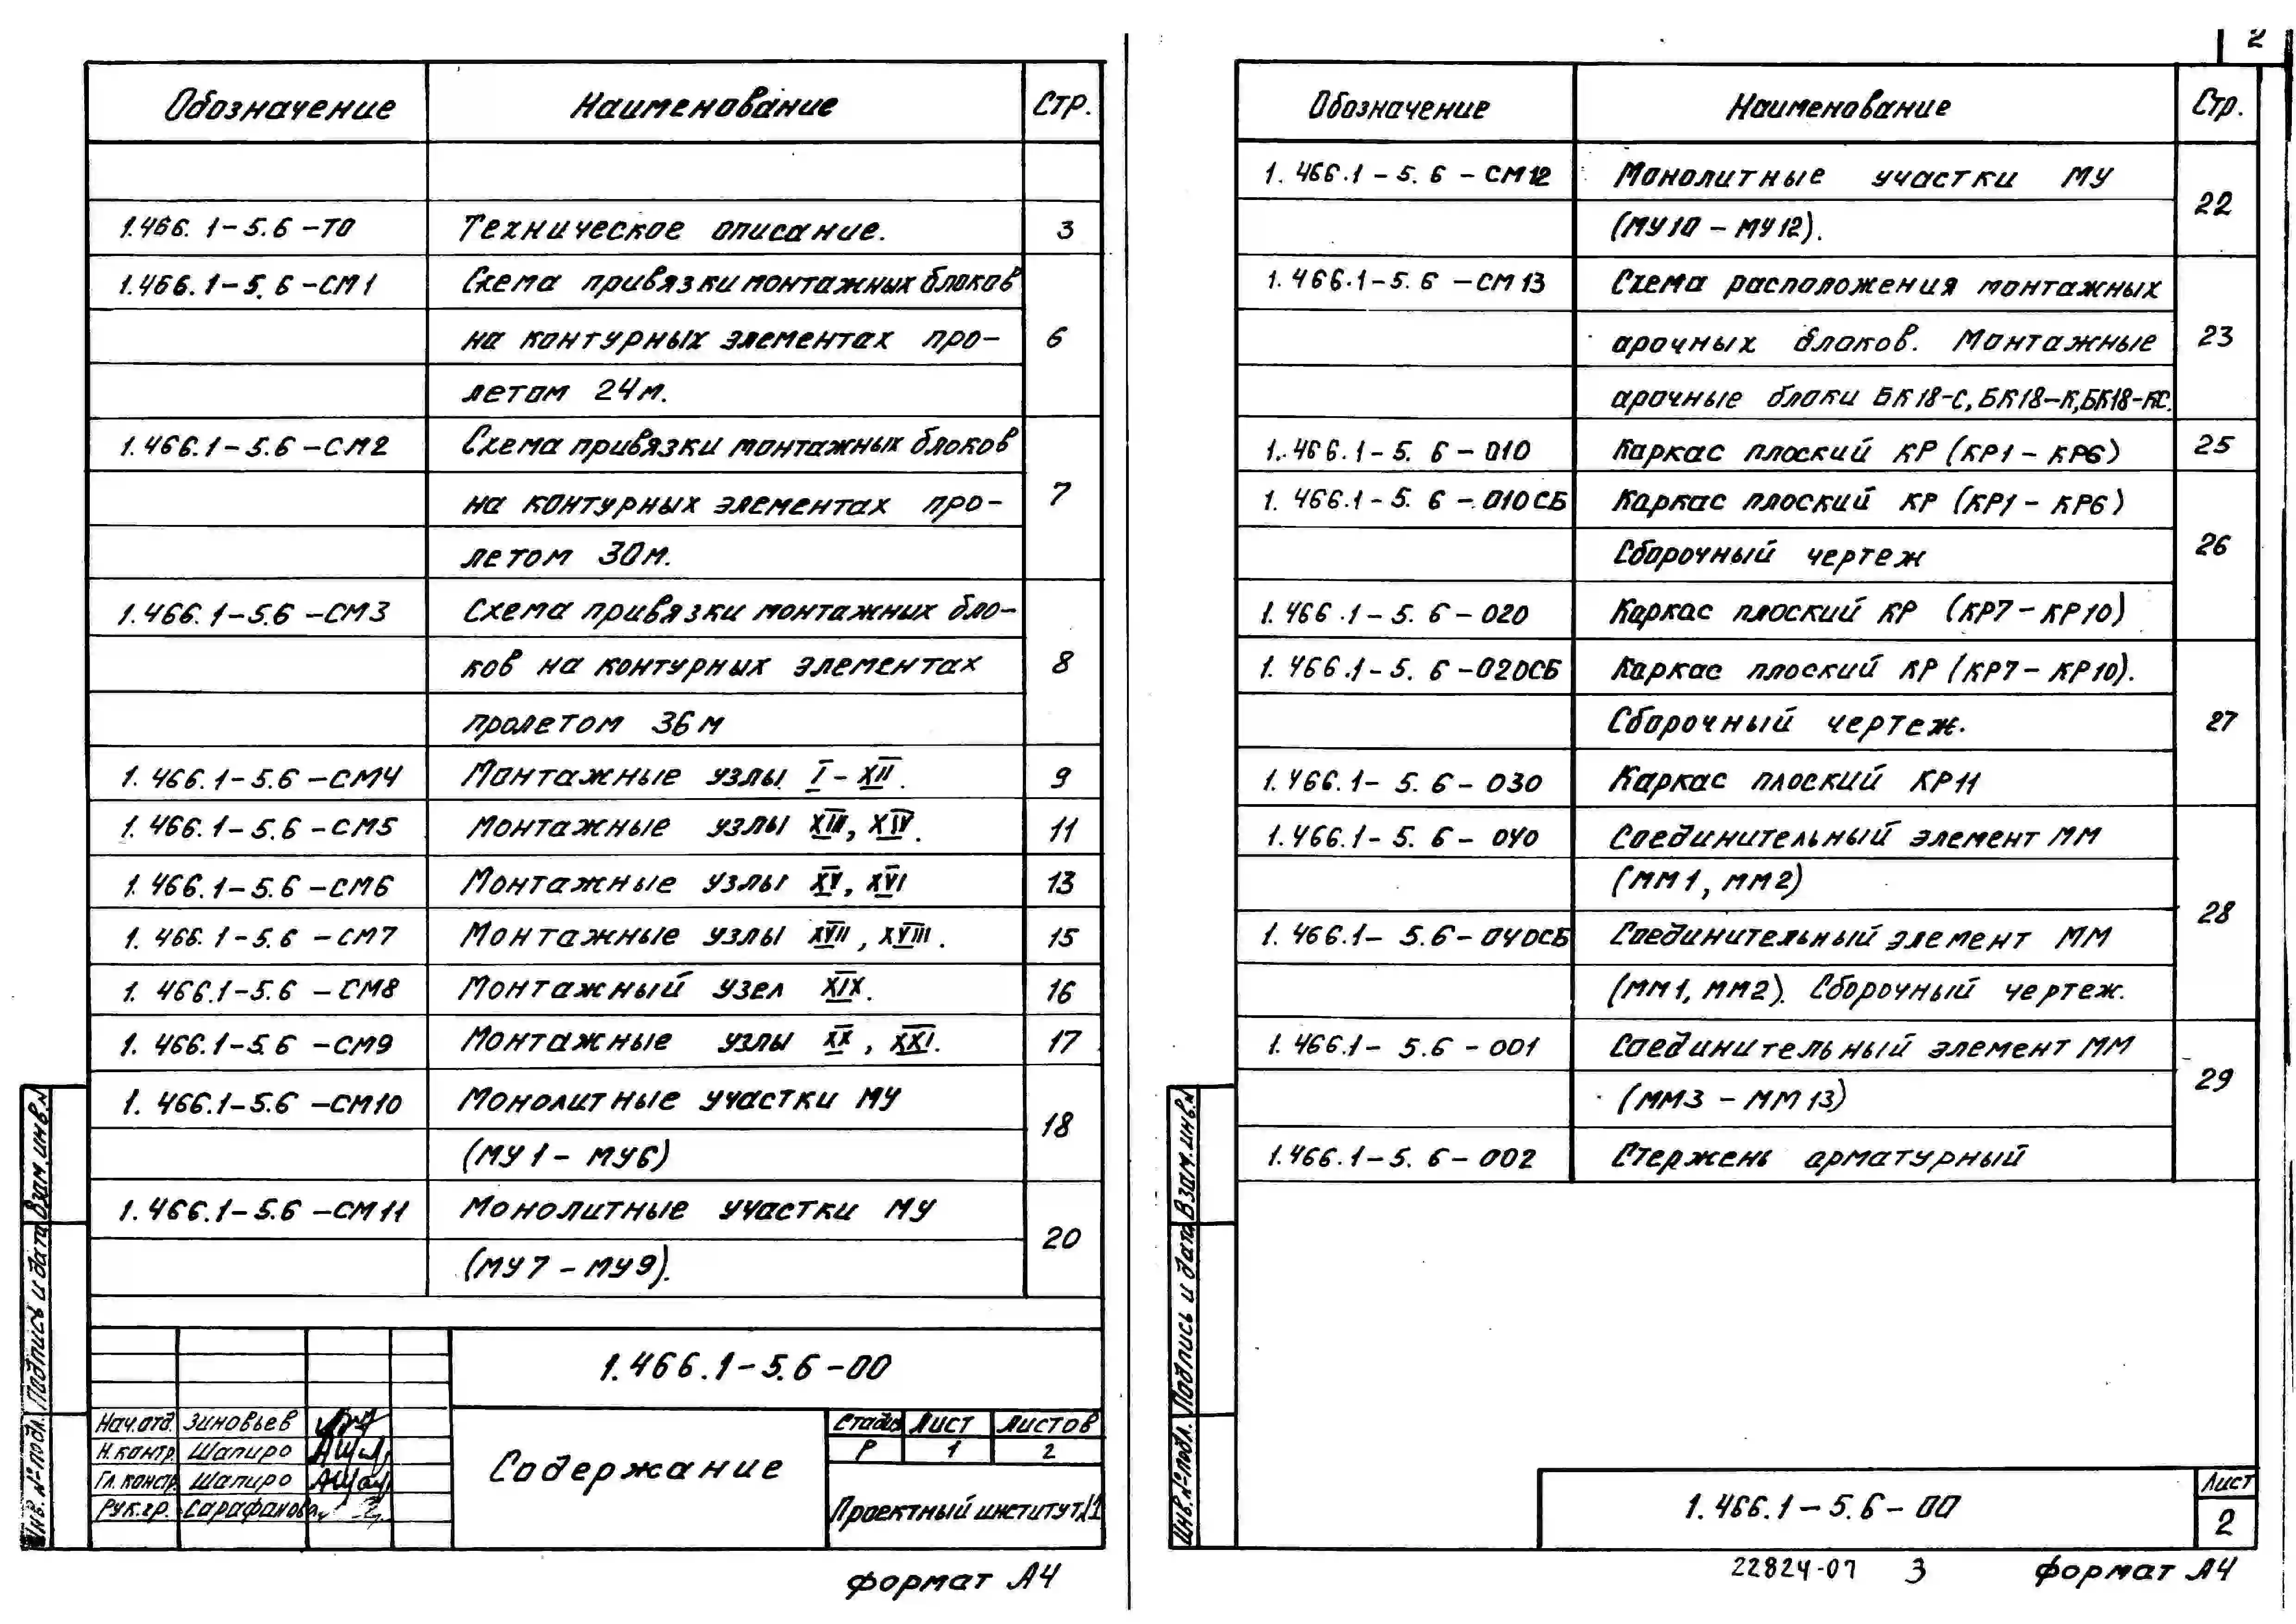 Обозначение Наименование Стр.
1.466.1-5.6-ТО Техническое описание. 3
1.466.1-5.6-СМ1 Схема привязки монтажных блоков
на контурных элементах про- 6
летом 24м.
1.466.1-5.6-СМ2 Схема привязки монтажных блоков
на контурных элементах про- 7
летом 30м.
1.466.1-5.6-СМ3 Схема привязки монтажных бло-
ков на контурных элементах 8
пролетом 36м
1.466.1-5.6-СМ4 Монтажные узлы I-XII. 9
1.466.1-5.6-СМ5 Монтажные узлы XIII, XIV. 11
1.466.1-5.6-СМ6 Монтажные узлы XV, XVI 13
1.466.1-5.6-СМ7 Монтажные узлы XVII, XVIII. 15
1.466.1-5.6-СМ8 Монтажный узел XIX. 16
1.466.1-5.6-СМ9 Монтажные узлы XX, XXI. 17
1.466.1-5.6-СМ10 Монолитные участки МУ
18
(МУ1-МУ6)
1.466.1-5.6-СМ11 Монолитные участки МУ
20
(МУ7-МУ9).
1.466.1-5.6-00
Нач.отд. Зиновьев
Н.контр. Шапиро
Гл. констр. Шапиро
Рук.гр. Сарафанова
Содержание
Стадия Лист Листов
Р 1 2
Проектный институт №1
Инв. № подл. Подпись и дата Взам.инв.№
формат А4
2
Обозначение Наименование Стр.
1.466.1-5.6-СМ12 Монолитные участки МУ
22
(МУ10-МУ12).
1.466.1-5.6-СМ13 Схема расположения монтажных
арочных блоков. Монтажные 23
арочные блоки БК18-С, БК18-К, БК18-КС.
1.466.1-5.6-010 Каркас плоский КР (КР1-КР6) 25
1.466.1-5.6-010СБ Каркас плоский КР (КР1-КР6)
Сборочный чертеж 26
1.466.1-5.6-020 Каркас плоский КР (КР7-КР10)
1.466.1-5.6-020СБ Каркас плоский КР (КР7-КР10).
Сборочный чертеж. 27
1.466.1-5.6-030 Каркас плоский КР11
1.466.1-5.6-040 Соединительный элемент ММ
(ММ1, ММ2)
28
1.466.1-5.6-040СБ Соединительный элемент ММ
(ММ1, ММ2). Сборочный чертеж.
1.466.1-5.6-001 Соединительный элемент ММ
29
(ММ3-ММ13)
1.466.1-5.6-002 Стержень арматурный
Инв.№ подл. Подпись и дата Взам.инв.№
1.466.1-5.6-00
Лист
2
22824-07 3 формат А4